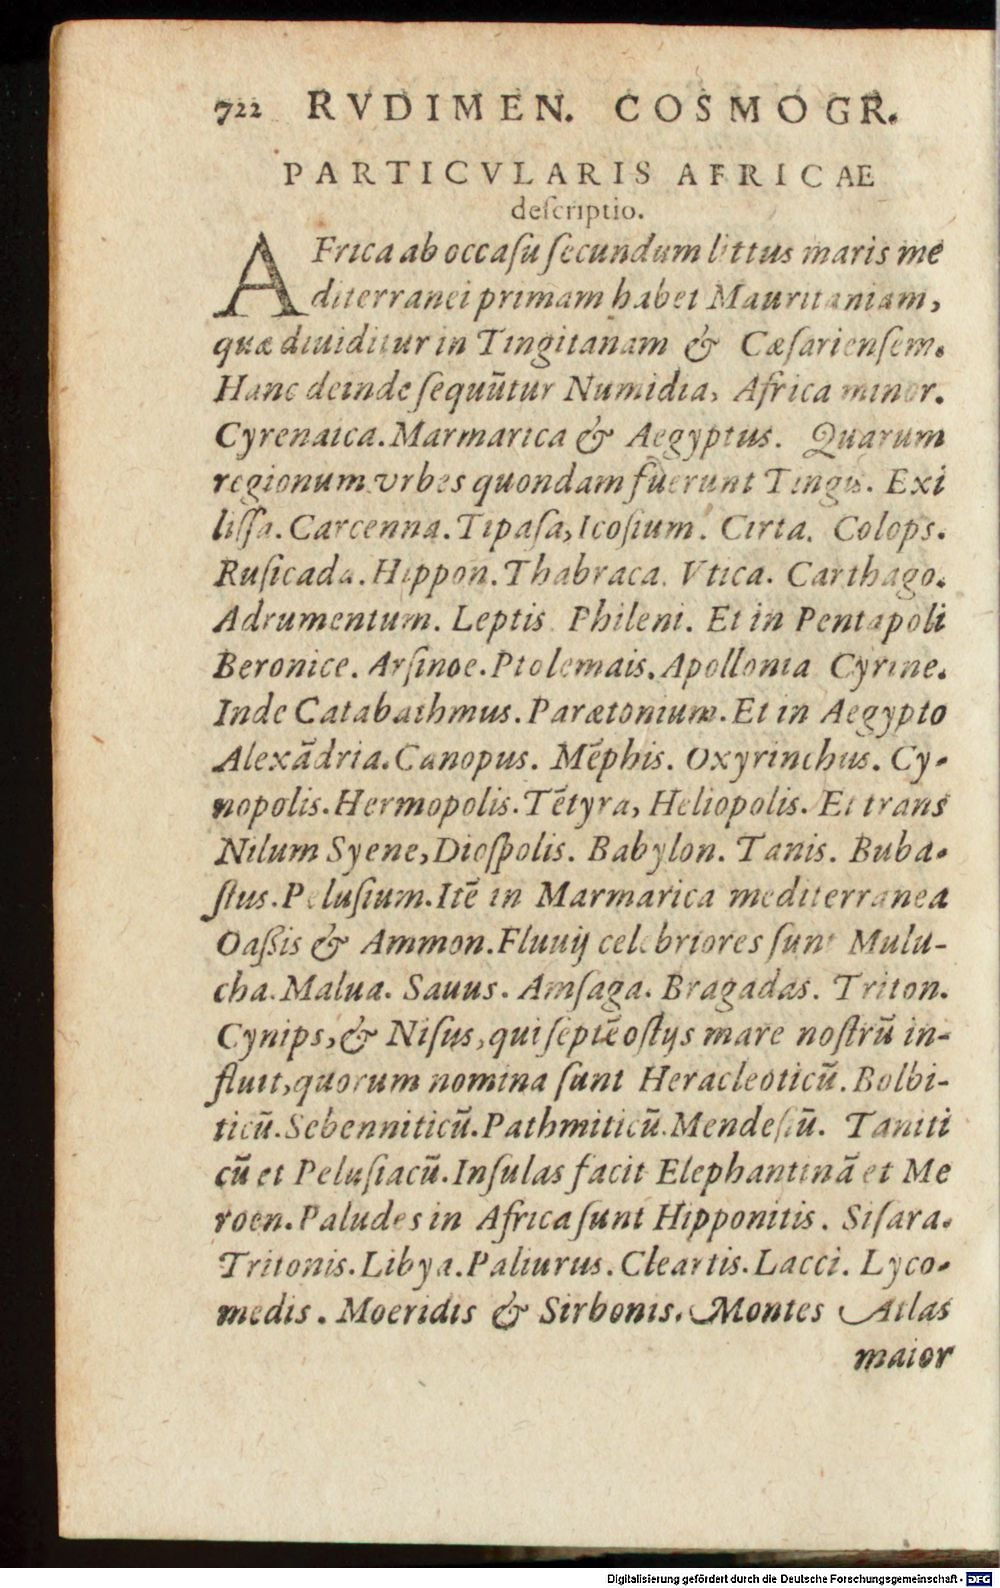 722 RVDIMEN. COSMOGR.
PARTICVLARIS AFRICAE
deſcriptio.
AFrica ab occaſu ſecundum littus maris me
diterranei primam habet Mauritaniam,
quæ diuiditur in Tingitanam & Cæſarienſem.
Hanc deinde ſequūtur Numidia, Africa minor.
Cyrenaica. Marmarica & Aegyptus. Quarum
regionum vrbes quondam fuerunt Tingis. Exi
liſſa. Carcenna. Tipaſa, Icoſium. Cirta. Colops.
Ruſicada. Hippon. Thabraca. Vtica. Carthago.
Adrumentum. Leptis. Phileni. Et in Pentapoli
Beronice. Arſinoe. Ptolemais. Apollonia Cyrine.
Inde Catabathmus. Parætonium. Et in Aegypto
Alexādria. Canopus. Mēphis. Oxyrinchus. Cy-
nopolis. Hermopolis. Tētyra, Heliopolis. Et trans
Nilum Syene, Dioſpolis. Babylon. Tanis. Buba-
ſtus. Peluſium. Itē in Marmarica mediterranea
Oaßis & Ammon. Fluuij celebriores ſunt Mulu-
cha. Malua. Sauus. Amſaga. Bragadas. Triton.
Cynips, & Niſus, qui ſeptē oſtijs mare noſtrū in-
fluit, quorum nomina ſunt Heracleoticū. Bolbi-
ticū. Sebenniticū. Pathmiticū. Mendeſiū. Taniti
cū et Peluſiacū. Inſulas facit Elephantinā et Me
roen. Paludes in Africa ſunt Hipponitis. Siſara.
Tritonis. Libya. Paliurus. Cleartis. Lacci. Lyco-
medis. Moeridis & Sirbonis. Montes Atlas
maior
Digitalisierung gefördert durch die Deutsche Forschungsgemeinschaft - DFG